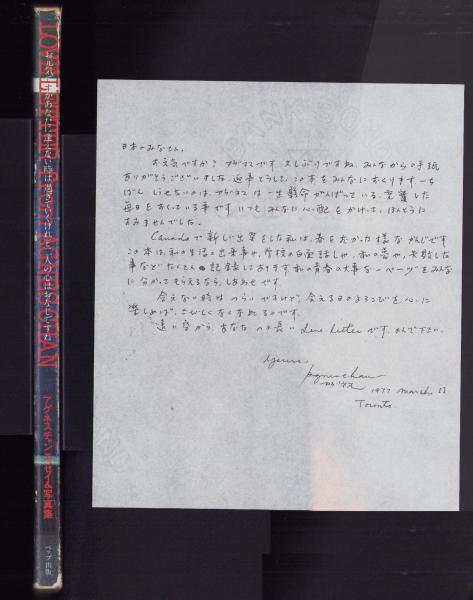 LOVE LETTER FROM AGNES CHAN
お元気ですか あなたに逢えない時は過ぎていくけれど 二人の心はおなじですね
アグネス・チャン エッセイ&写真集
ペップ出版
日本のみなさん。
お元気ですか? アグネスです。久しぶりですね。みんなからの手紙
ありがとうございました。返事どうしも、この本をみんなにおくります。一ち
ばん しらせたいのは、アグネスは一生懸命がんばっている。充実した
毎日をおくっている事です。いつもみんなに心配をかけて、ほんとうに
すみませんでした。
Canadaで新しい出発をした私は、春をむかった様なかんじです
この本は、私の生活の出来事や、学校の白夏話しや、私の夢や、失敗した
事など たくさん 記録しております。私の青春の大事な一ページをみんな
にながめてもらえるなら、しあわせです。
会えない時は つらいですけど、会える日のよろこびを心に
楽しめば、さびしくなくなれるのです。
遠い空から、あなたへの長い Love letter です。よんで下さい。
Yours,
Agnes Chan
アグネス 1977 March 11
Toronto.